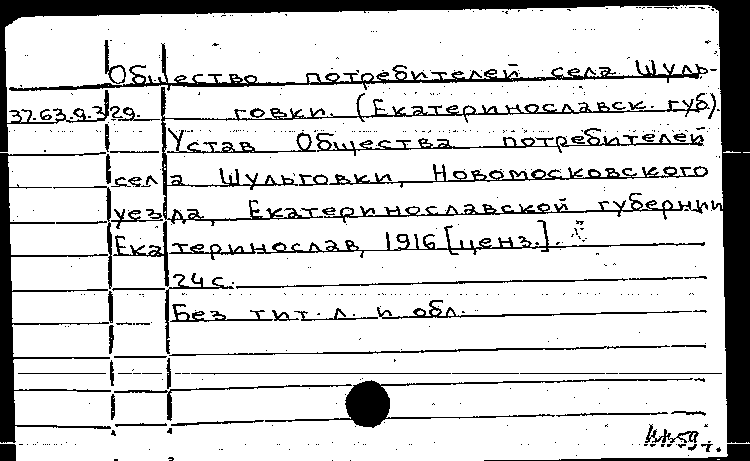 Общество потребителей села Шуль-
37.63.9.329. говки. (Екатеринославск. губ).
Устав Общества потребителей
села Шульговки, Новомосковского
уезда, Екатеринославской губернии
Екатеринослав, 1916 [ценз.].
24 с.
Без тит. л. и обл.